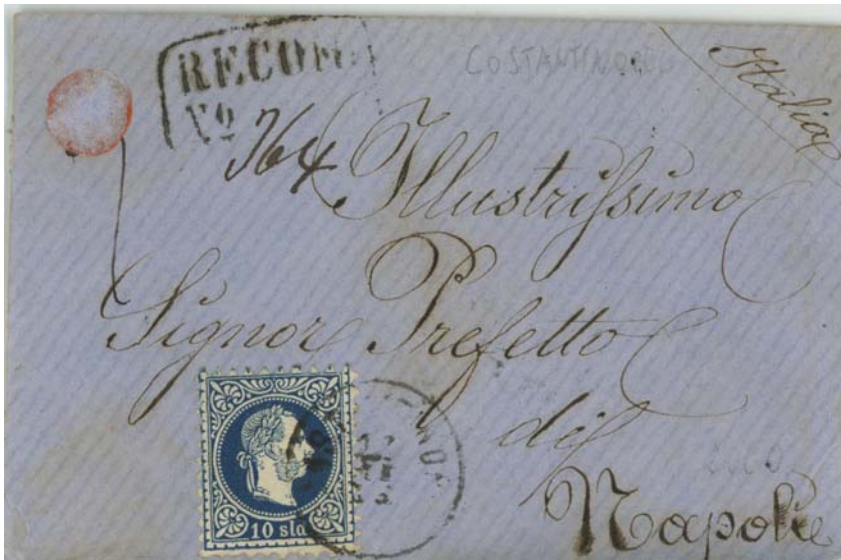 RECOM
No
764
COSTANTINOPOLI
Italia
Illustrissimo
Signor Prefetto
di
Napoli
10 sld